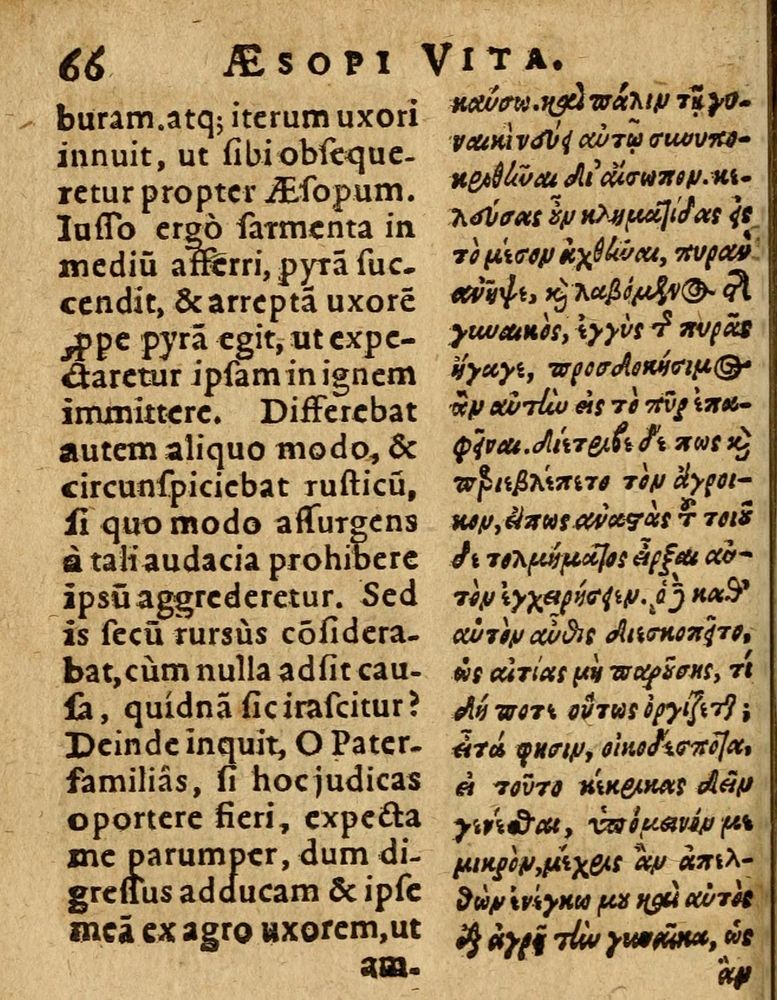 66 ÆSOPI VITA.
buram. atq; iterum uxori
innuit, ut ſibi obſeque-
retur propter Æſopum.
Iuſſo ergò ſarmenta in
mediū afferri, pyrā ſuc-
cendit, & arreptā uxorē
ꝓpe pyrā egit, ut expe-
ctaretur ipſam in ignem
immittere. Differebat
autem aliquo modo, &
circunſpiciebat ruſticū,
ſi quo modo aſſurgens
à tali audacia prohibere
ipſū aggrederetur. Sed
is ſecū rursùs cōſidera-
bat, cùm nulla adſit cau-
ſa, quídnā ſic iraſcitur?
Deinde inquit, O Pater-
familiâs, ſi hoc judicas
oportere fieri, expecta
me parumper, dum di-
greſſus adducam & ipſe
meā ex agro uxorem, ut
am-
καύσω. καὶ πάλιν τῇ γυ-
ναικὶ νεύει αὐτῷ συνυπο-
κριθῆναι δι' αἴσωπον. κε-
λεύσας οὖν κληματίδας εἰς
τὸ μέσον ἀχθῆναι, πυρὰν
ἀνῆψε, κὶ λαβόμενος τῆς
γυναικὸς, ἐγγὺς τῆς πυρᾶς
ἤγαγε, προσδοκήσιμος
ἂν αὐτὴν εἰς τὸ πῦρ ἐπα-
φεῖναι. διέτριβε δέ πως κὶ
περιεβλέπετο τὸν ἄγροι-
κον, εἴπως ἀναστὰς τοῦ τοιού
δε τολμήματος εἶρξαι αὐ-
τὸν ἐγχειρήσειεν. ὁ δὲ καθ'
αὑτὸν αὖθις διεσκοπεῖτο,
ὡς αἰτίας μὴ παρούσης, τί
δή ποτε οὕτως ὀργίζεται;
εἶτά φησιν, οἰκοδέσποτα,
εἰ τοῦτο κέκρικας δεῖν
γενέσθαι, ὑπόμεινόν με
μικρὸν, μέχρις ἂν ἀπελ-
θὼν ἐνέγκω μου καὶ αὐτὸς
ἐξ ἀγροῦ τὴν γυναῖκα, ὡς
ἂν